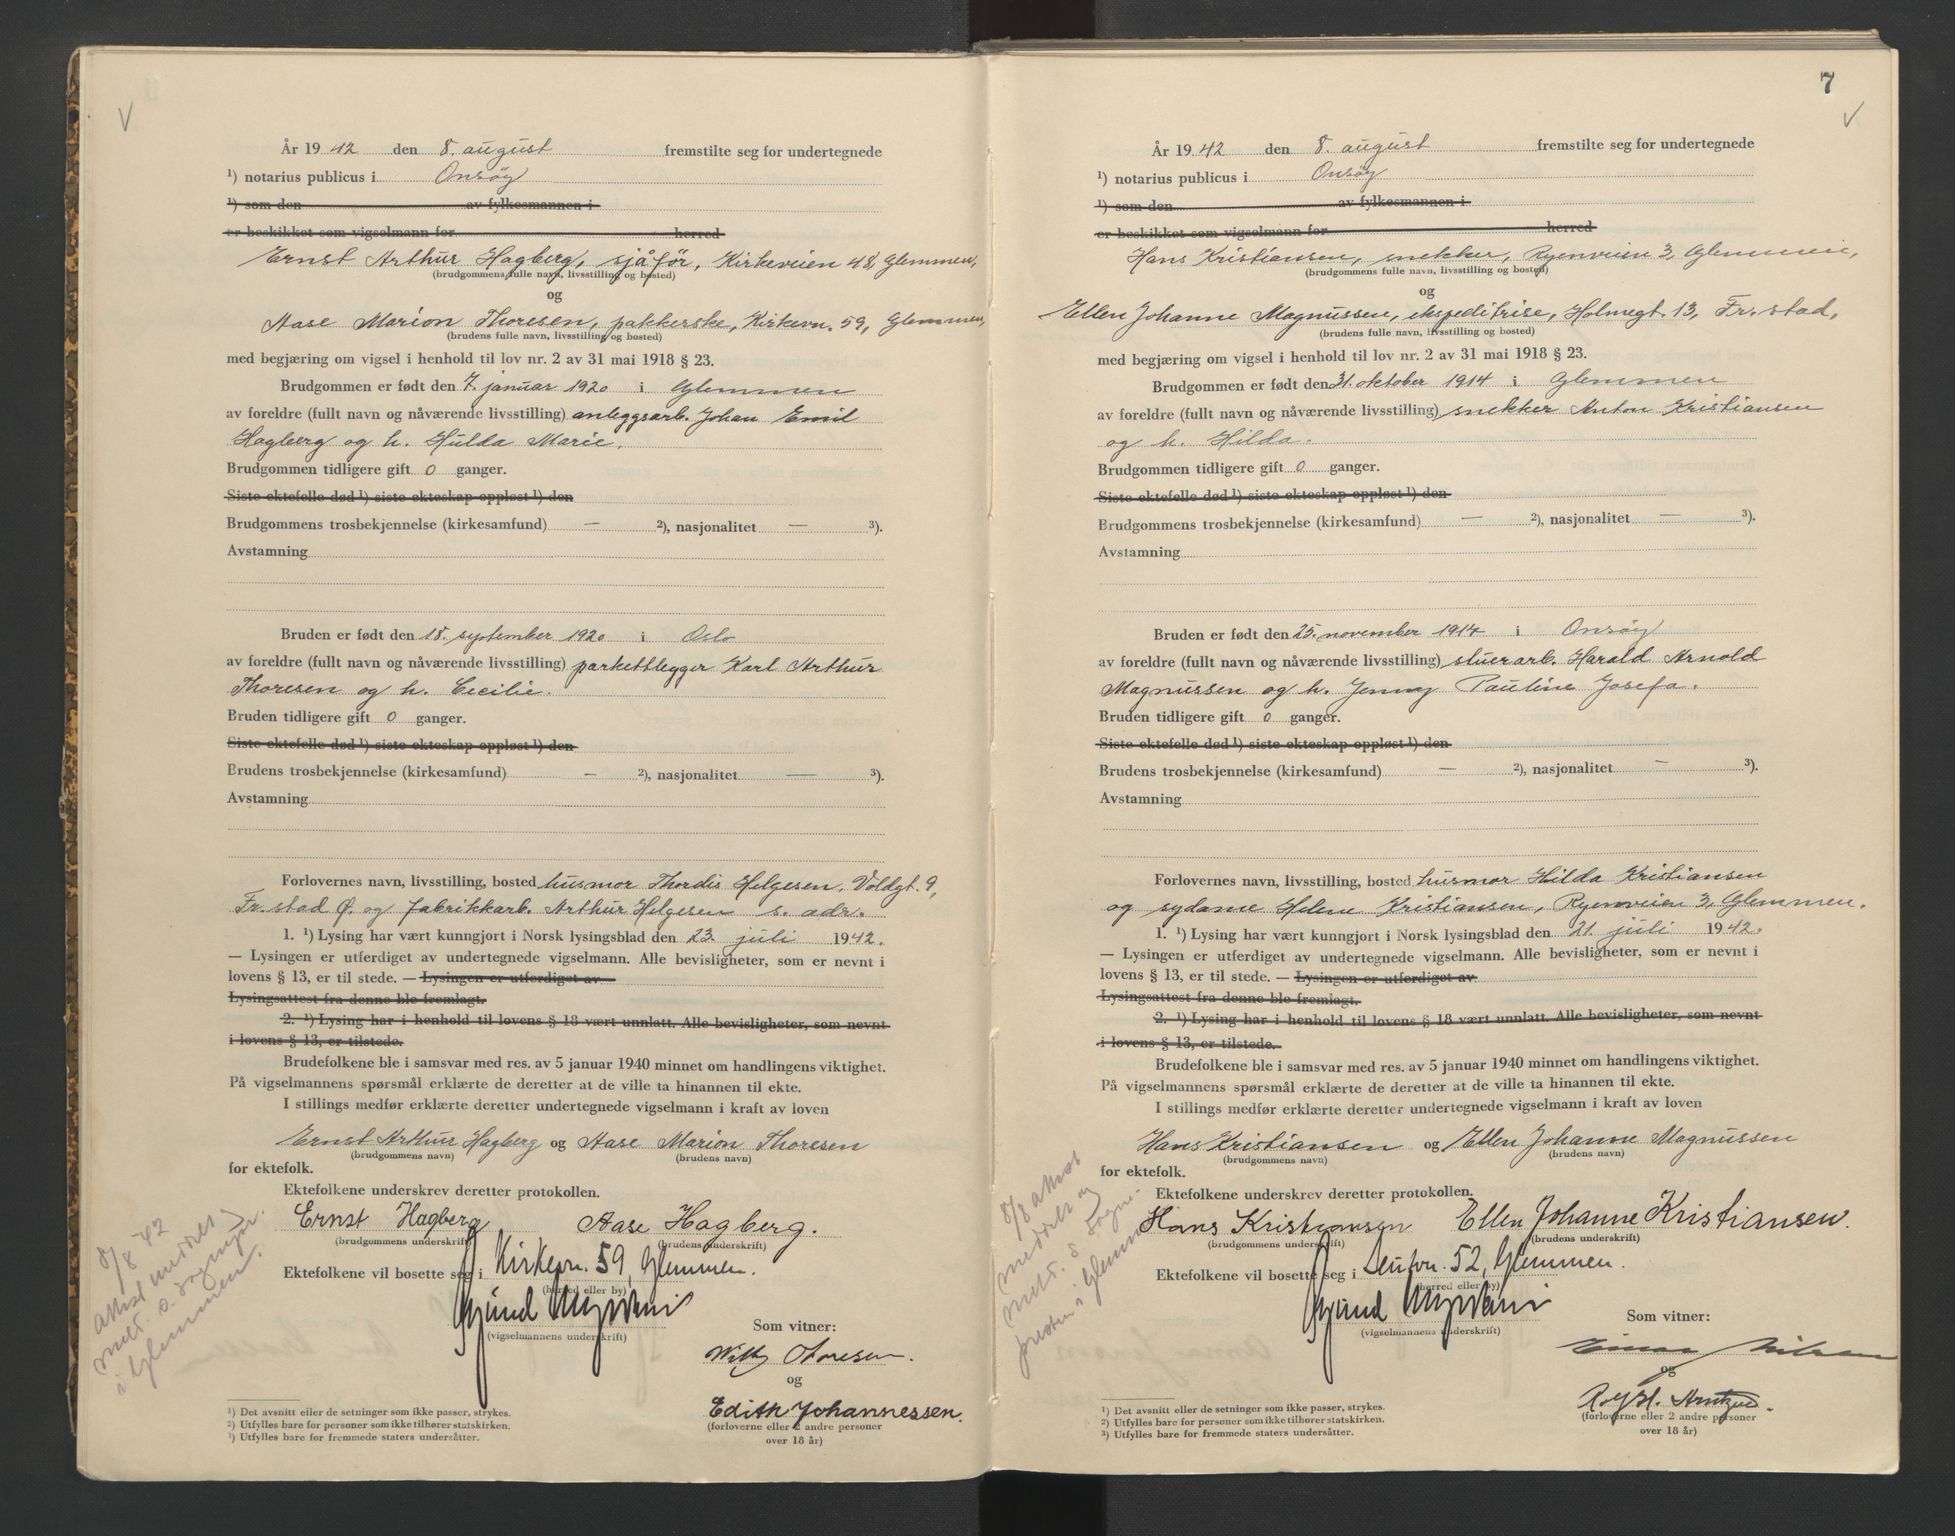 År 1942 den 8. august fremstilte seg for undertegnede
¹) notarius publicus i Onsøy
¹) som den av fylkesmannen i
er beskikket som vigselmann for herred
Ernst Arthur Hagberg, sjåfør, Kirkeveien 48, Glemmen,
(brudgommens fulle navn, livsstilling og bosted)
og
Aase Marion Thoresen, pakkerske, Kirkevn. 59, Glemmen,
(brudens fulle navn, livsstilling og bosted)
med begjæring om vigsel i henhold til lov nr. 2 av 31 mai 1918 § 23.
Brudgommen er født den 7. januar 1920 i Glemmen
av foreldre (fullt navn og nåværende livsstilling) anleggsarb. Johan Emil
Hagberg og h. Hulda Marie.
Brudgommen tidligere gift 0 ganger.
Siste ektefelle død ¹) siste ekteskap oppløst ¹) den
Brudgommens trosbekjennelse (kirkesamfund) — ²), nasjonalitet — ³).
Avstamning
Bruden er født den 18. september 1920 i Oslo
av foreldre (fullt navn og nåværende livsstilling) parkettlegger Karl Arthur
Thoresen og h. Cecilie.
Bruden tidligere gift 0 ganger.
Siste ektefelle død ¹) siste ekteskap oppløst ¹) den
Brudens trosbekjennelse (kirkesamfund) — ²), nasjonalitet — ³).
Avstamning
Forlovernes navn, livsstilling, bosted husmor Thordis Helgesen, Voldgt. 9,
Fr.stad Ø. og fabrikkarb. Arthur Helgesen s. adr.
1. ¹) Lysing har vært kunngjort i Norsk lysingsblad den 23. juli 1942.
— Lysingen er utferdiget av undertegnede vigselmann. Alle bevisligheter, som er nevnt i
lovens § 13, er til stede. — Lysingen er utferdiget av
Lysingsattest fra denne ble fremlagt.
2. ¹) Lysing har i henhold til lovens § 18 vært unnlatt. Alle bevisligheter, som nevnt
i lovens § 13, er tilstede.
Brudefolkene ble i samsvar med res. av 5 januar 1940 minnet om handlingens viktighet.
På vigselmannens spørsmål erklærte de deretter at de ville ta hinannen til ekte.
I stillings medfør erklærte deretter undertegnede vigselmann i kraft av loven
Ernst Arthur Hagberg og Aase Marion Thoresen
(brudgommens navn) (brudens navn)
for ektefolk.
Ektefolkene underskrev deretter protokollen.
Ernst Hagberg Aase Hagberg.
(brudgommens underskrift) (brudens underskrift)
Ektefolkene vil bosette seg i Kirkevn. 59, Glemmen.
(herred eller by)
(vigselmannens underskrift)
Som vitner:
Willy Thoresen.
og
Edith Johannessen.
(forloverne eller 2 andre personer
over 18 år)
8/8 42
attest meddelt og
medt. s. sognepr.
i Glemmen.
¹) Det avsnitt eller de setninger som ikke passer, strykes.
²) Utfylles bare for personer som ikke tilhører statskirken.
³) Utfylles bare for fremmede staters undersåtter.
7
År 1942 den 8. august fremstilte seg for undertegnede
¹) notarius publicus i Onsøy
¹) som den av fylkesmannen i
er beskikket som vigselmann for herred
Hans Kristiansen, snekker, Ryenveien 3, Glemmen,
(brudgommens fulle navn, livsstilling og bosted)
og
Ellen Johanne Magnussen, ekspeditrise, Holmegt. 13, Fr.stad,
(brudens fulle navn, livsstilling og bosted)
med begjæring om vigsel i henhold til lov nr. 2 av 31 mai 1918 § 23.
Brudgommen er født den 31. oktober 1914 i Glemmen
av foreldre (fullt navn og nåværende livsstilling) snekker Anton Kristiansen
og h. Hilda.
Brudgommen tidligere gift 0 ganger.
Siste ektefelle død ¹) siste ekteskap oppløst ¹) den
Brudgommens trosbekjennelse (kirkesamfund) — ²), nasjonalitet — ³).
Avstamning
Bruden er født den 25. november 1914 i Onsøy
av foreldre (fullt navn og nåværende livsstilling) stuerarb. Harald Arnold
Magnussen og h. Jenny Pauline Josefa.
Bruden tidligere gift 0 ganger.
Siste ektefelle død ¹) siste ekteskap oppløst ¹) den
Brudens trosbekjennelse (kirkesamfund) — ²), nasjonalitet — ³).
Avstamning
Forlovernes navn, livsstilling, bosted husmor Hilda Kristiansen
og sydame Helene Kristiansen, Ryenveien 3, Glemmen.
1. ¹) Lysing har vært kunngjort i Norsk lysingsblad den 21. juli 1942.
— Lysingen er utferdiget av undertegnede vigselmann. Alle bevisligheter, som er nevnt i
lovens § 13, er til stede. — Lysingen er utferdiget av
Lysingsattest fra denne ble fremlagt.
2. ¹) Lysing har i henhold til lovens § 18 vært unnlatt. Alle bevisligheter, som nevnt
i lovens § 13, er tilstede.
Brudefolkene ble i samsvar med res. av 5 januar 1940 minnet om handlingens viktighet.
På vigselmannens spørsmål erklærte de deretter at de ville ta hinannen til ekte.
I stillings medfør erklærte deretter undertegnede vigselmann i kraft av loven
Hans Kristiansen og Ellen Johanne Magnussen
(brudgommens navn) (brudens navn)
for ektefolk.
Ektefolkene underskrev deretter protokollen.
Hans Kristiansen Ellen Johanne Kristiansen.
(brudgommens underskrift) (brudens underskrift)
Ektefolkene vil bosette seg i 52, Glemmen.
(herred eller by)
(vigselmannens underskrift)
Som vitner:
Einar Nilsen
og
(forloverne eller 2 andre personer
over 18 år)
8/8 attest
meddelt og
medt. s. sogne-
presten i Glemmen
¹) Det avsnitt eller de setninger som ikke passer, strykes.
²) Utfylles bare for personer som ikke tilhører statskirken.
³) Utfylles bare for fremmede staters undersåtter.